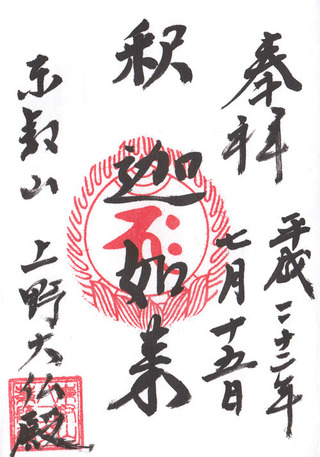 奉拝
平成二十二年
七月十五日
釈迦如来
东叡山 上野大仏殿